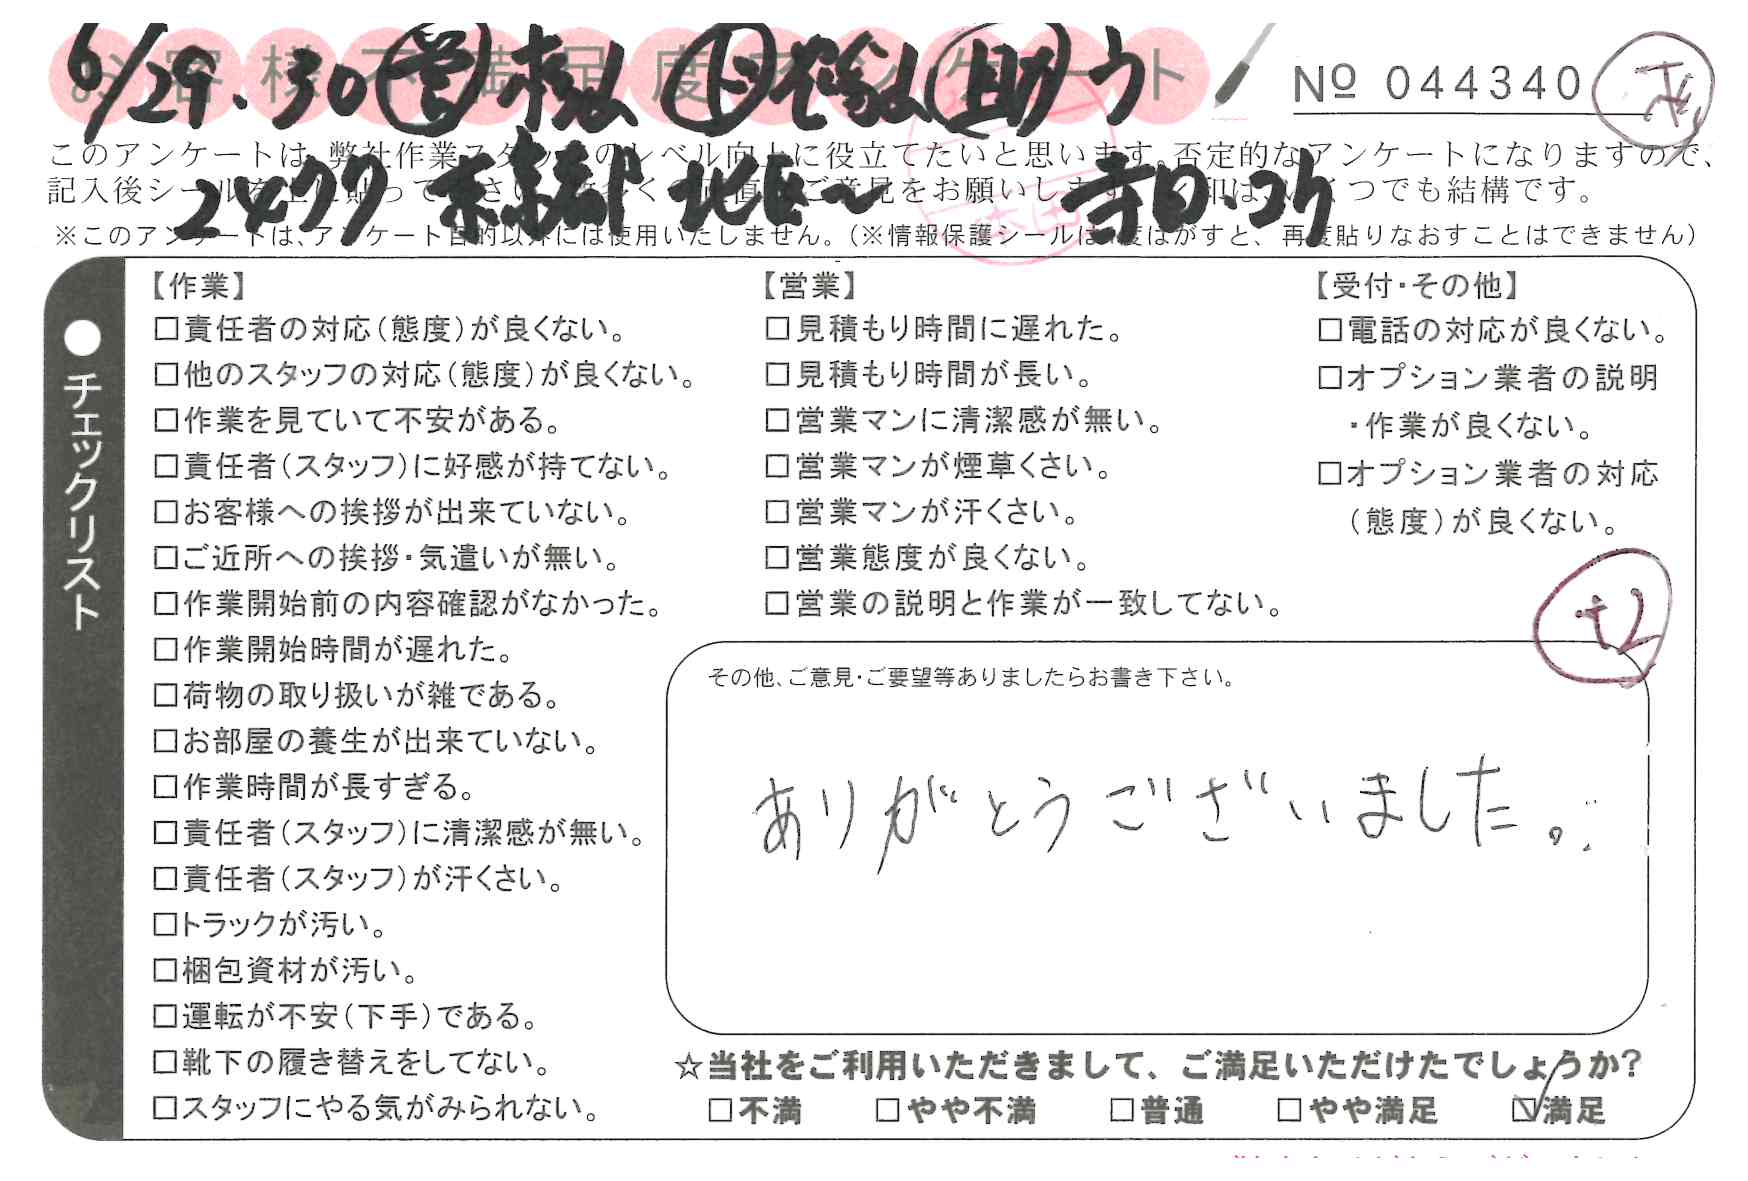 お客様不満足度アンケート
6/29.30 営 ト 助
№ 044340
このアンケートは、弊社作業スタッフのレベル向上に役立てたいと思います。否定的なアンケートになりますので、
記入後シールを上に貼って下さい。をお願いします。つでも結構です。
2477 京都 北区〜 寺田
※このアンケートは、アンケート目的以外には使用いたしません。(※情報保護シールは1度はがすと、再度貼りなおすことはできません)
●チェックリスト
【作業】
□責任者の対応(態度)が良くない。
□他のスタッフの対応(態度)が良くない。
□作業を見ていて不安がある。
□責任者(スタッフ)に好感が持てない。
□お客様への挨拶が出来ていない。
□ご近所への挨拶・気遣いが無い。
□作業開始前の内容確認がなかった。
□作業開始時間が遅れた。
□荷物の取り扱いが雑である。
□お部屋の養生が出来ていない。
□作業時間が長すぎる。
□責任者(スタッフ)に清潔感が無い。
□責任者(スタッフ)が汗くさい。
□トラックが汚い。
□梱包資材が汚い。
□運転が不安(下手)である。
□靴下の履き替えをしてない。
□スタッフにやる気がみられない。
【営業】
□見積もり時間に遅れた。
□見積もり時間が長い。
□営業マンに清潔感が無い。
□営業マンが煙草くさい。
□営業マンが汗くさい。
□営業態度が良くない。
□営業の説明と作業が一致してない。
【受付・その他】
□電話の対応が良くない。
□オプション業者の説明
・作業が良くない。
□オプション業者の対応
(態度)が良くない。
その他、ご意見・ご要望等ありましたらお書き下さい。
ありがとうございました。
☆当社をご利用いただきまして、ご満足いただけたでしょうか?
□不満 □やや不満 □普通 □やや満足 ☑満足